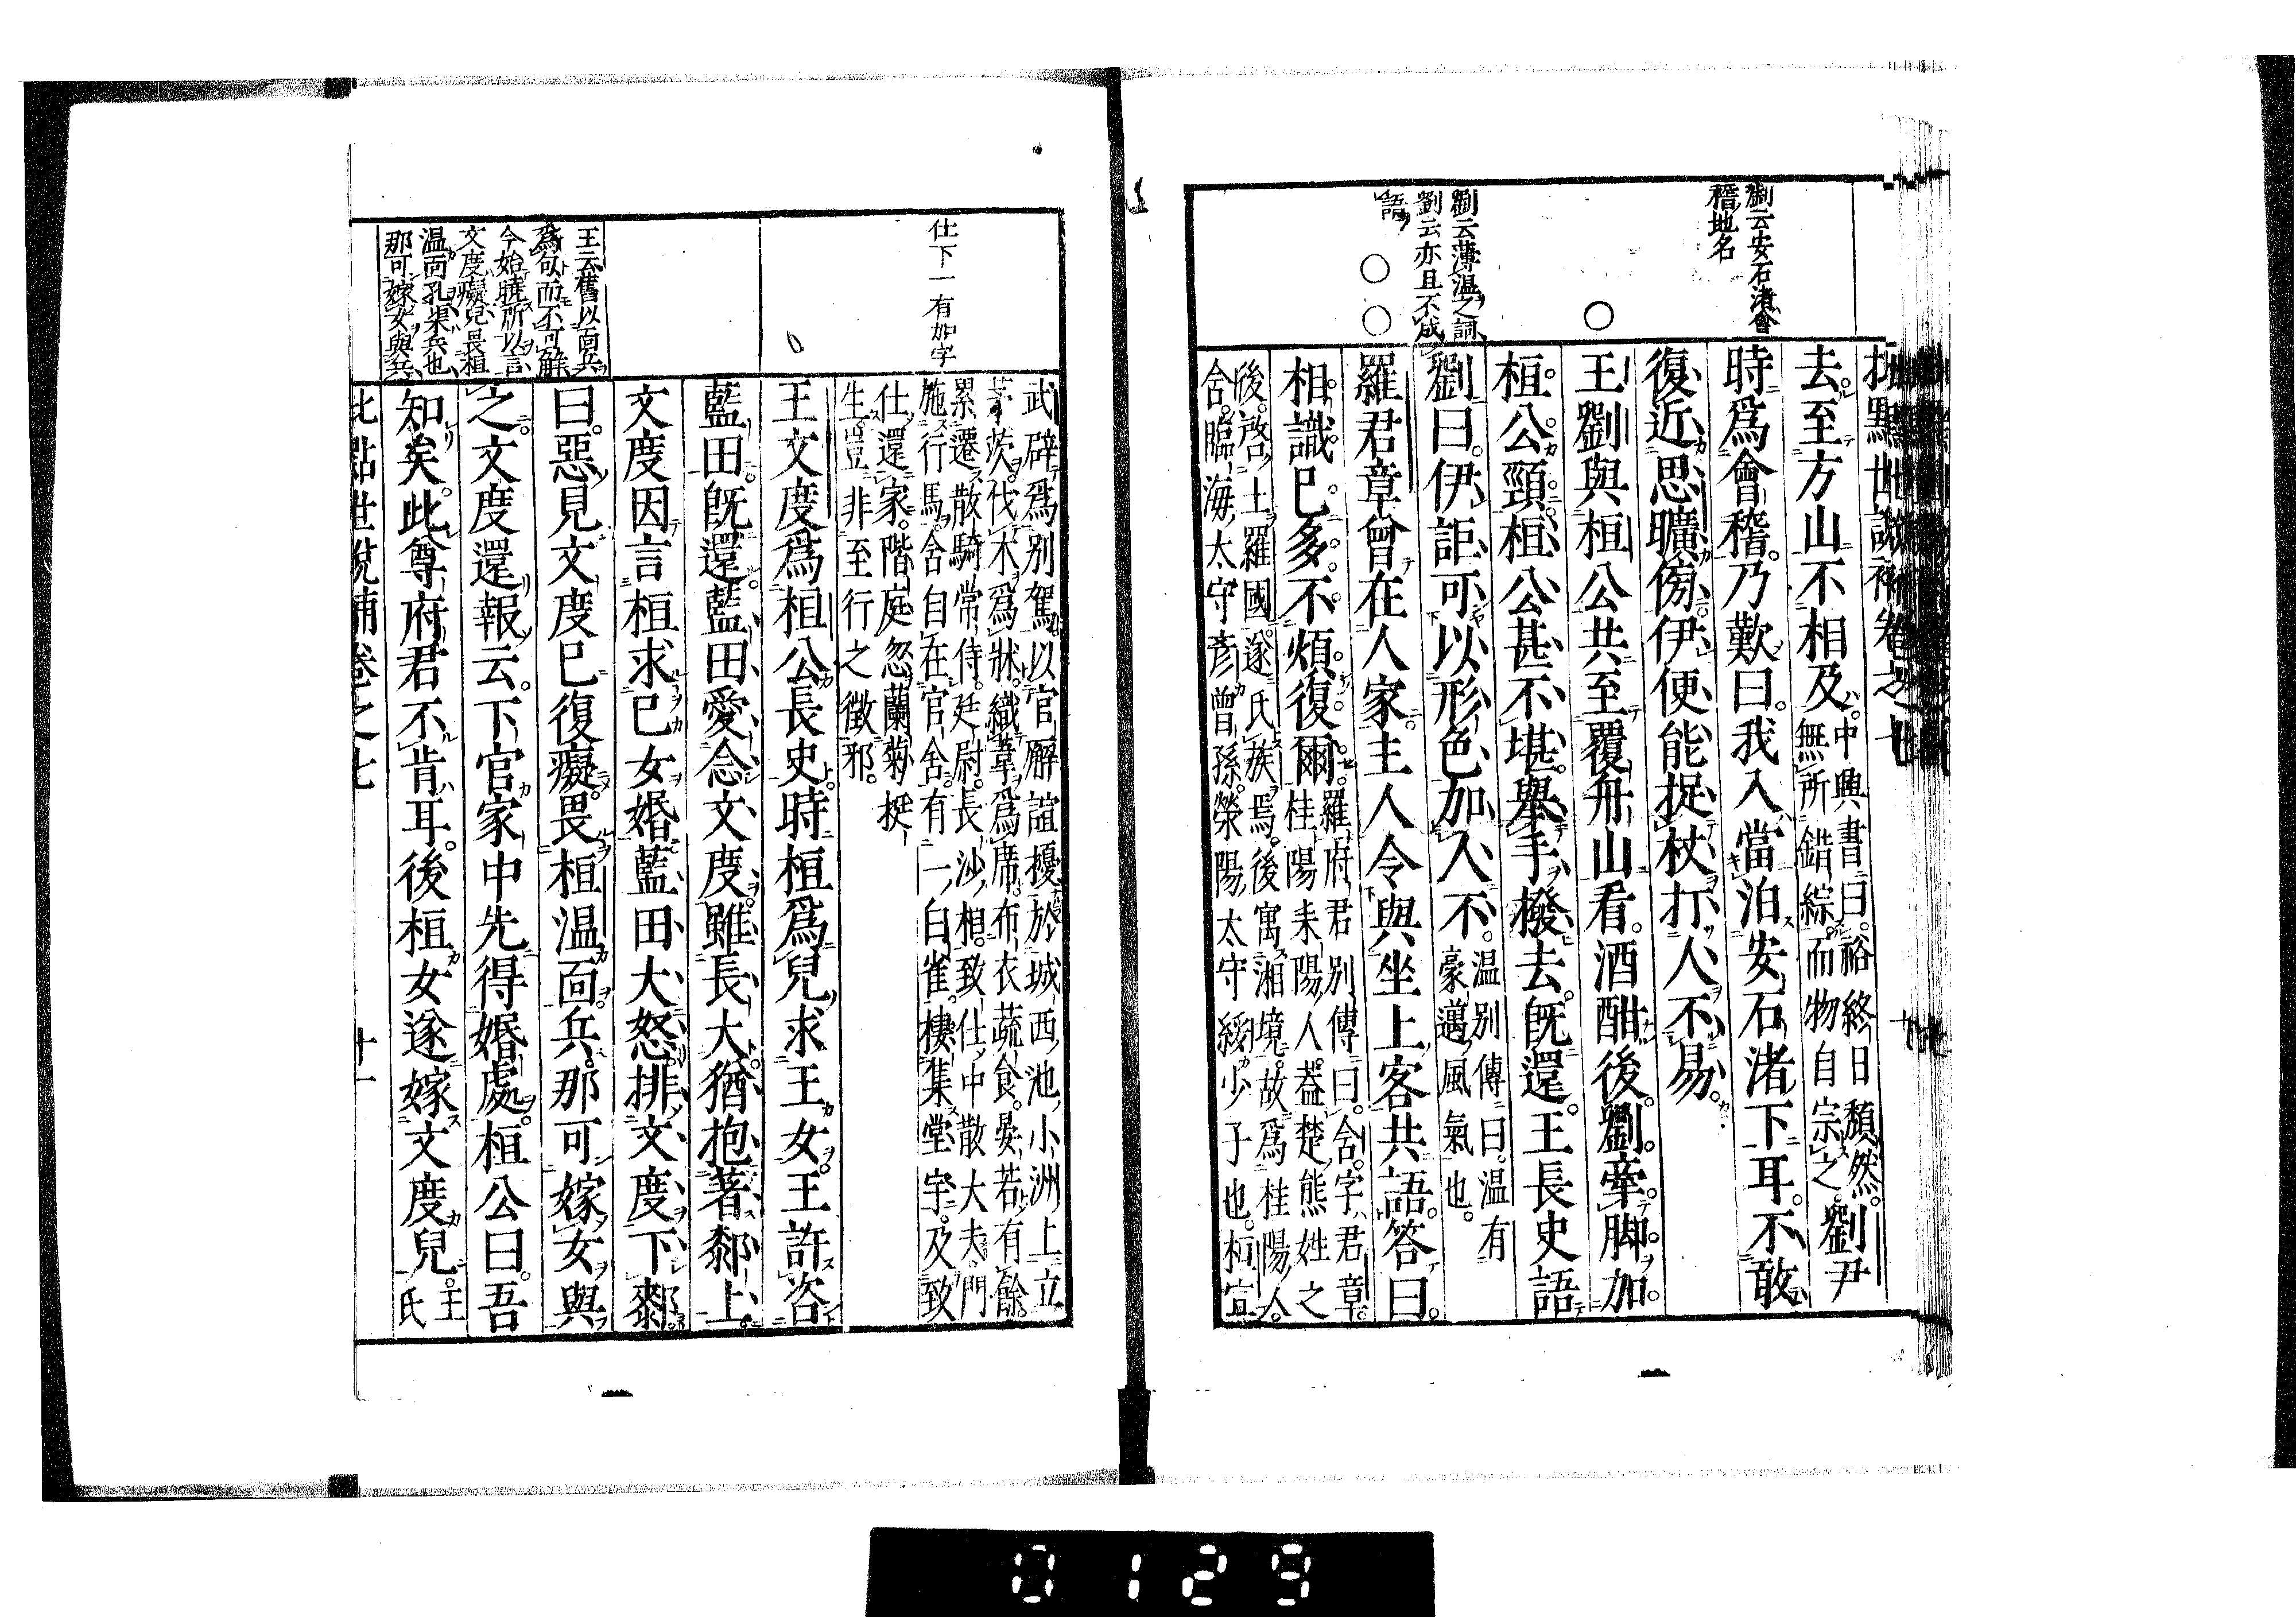 劉云安石渚會
稽地名
劉云薄温之詞
劉云亦且不成
語
批點世說補卷之七
去至方山不相及中興書曰裕終日頹然
無所錯綜而物自宗之劉尹
時爲會稽乃歎曰我入當泊安石渚下耳不敢
復近思曠傍伊便能捉杖打人不易
王劉與桓公共至覆舟山看酒酣後劉牽脚加
桓公頸桓公甚不堪舉手撥去既還王長史語
劉曰伊詎可以形色加人不温別傳曰温有
豪邁風氣也
羅君章曾在人家主人令與坐上客共語答曰
相識已多不煩復爾羅府君別傳曰舍字君章
桂陽耒陽人蓋楚熊姓之
後啓土羅國遂氏族焉後寓湘境故爲桂陽人
舍臨海太守彥曾孫榮陽太守綏少子也桓宣
仕下一有如字
王云舊以面兵
爲句而不可解
今始曉所以言
文度癡兒畏桓
温面孔渠兵也
那可嫁女與兵
武辟爲別駕以官廨諠擾於城西池小洲上立
茅茨伐木爲牀織葦爲席布衣蔬食晏若有餘
累遷散騎常侍廷尉長沙相致仕中散大夫門
施行馬舍自在官舍有一白雀棲集堂宇及致
仕還家階庭忽蘭菊挺
生豈非至行之徵邪
王文度爲桓公長史時桓爲兒求王女王許咨
藍田既還藍田愛念文度雖長大猶抱著鄰上
文度因言桓求己女婚藍田大怒排文度下鄰
曰惡見文度已復癡畏桓温面兵那可嫁女與
之文度還報云下官家中先得婚處桓公曰吾
知矣此尊府君不肯耳後桓女遂嫁文度兒王
氏
批點世說補卷之七
十一
0129